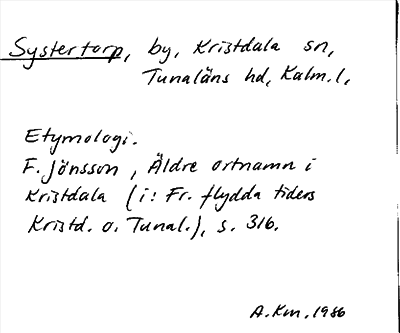 Systertorp, by, Kristdala sn,
Tunaläns hd, Kalm. l.
Etymologi.
F. Jönsson, Äldre ortnamn i
Kristdala (i: Fr. flydda tiders
Kristd. o. Tunal.), s. 316.
A.Km. 1986